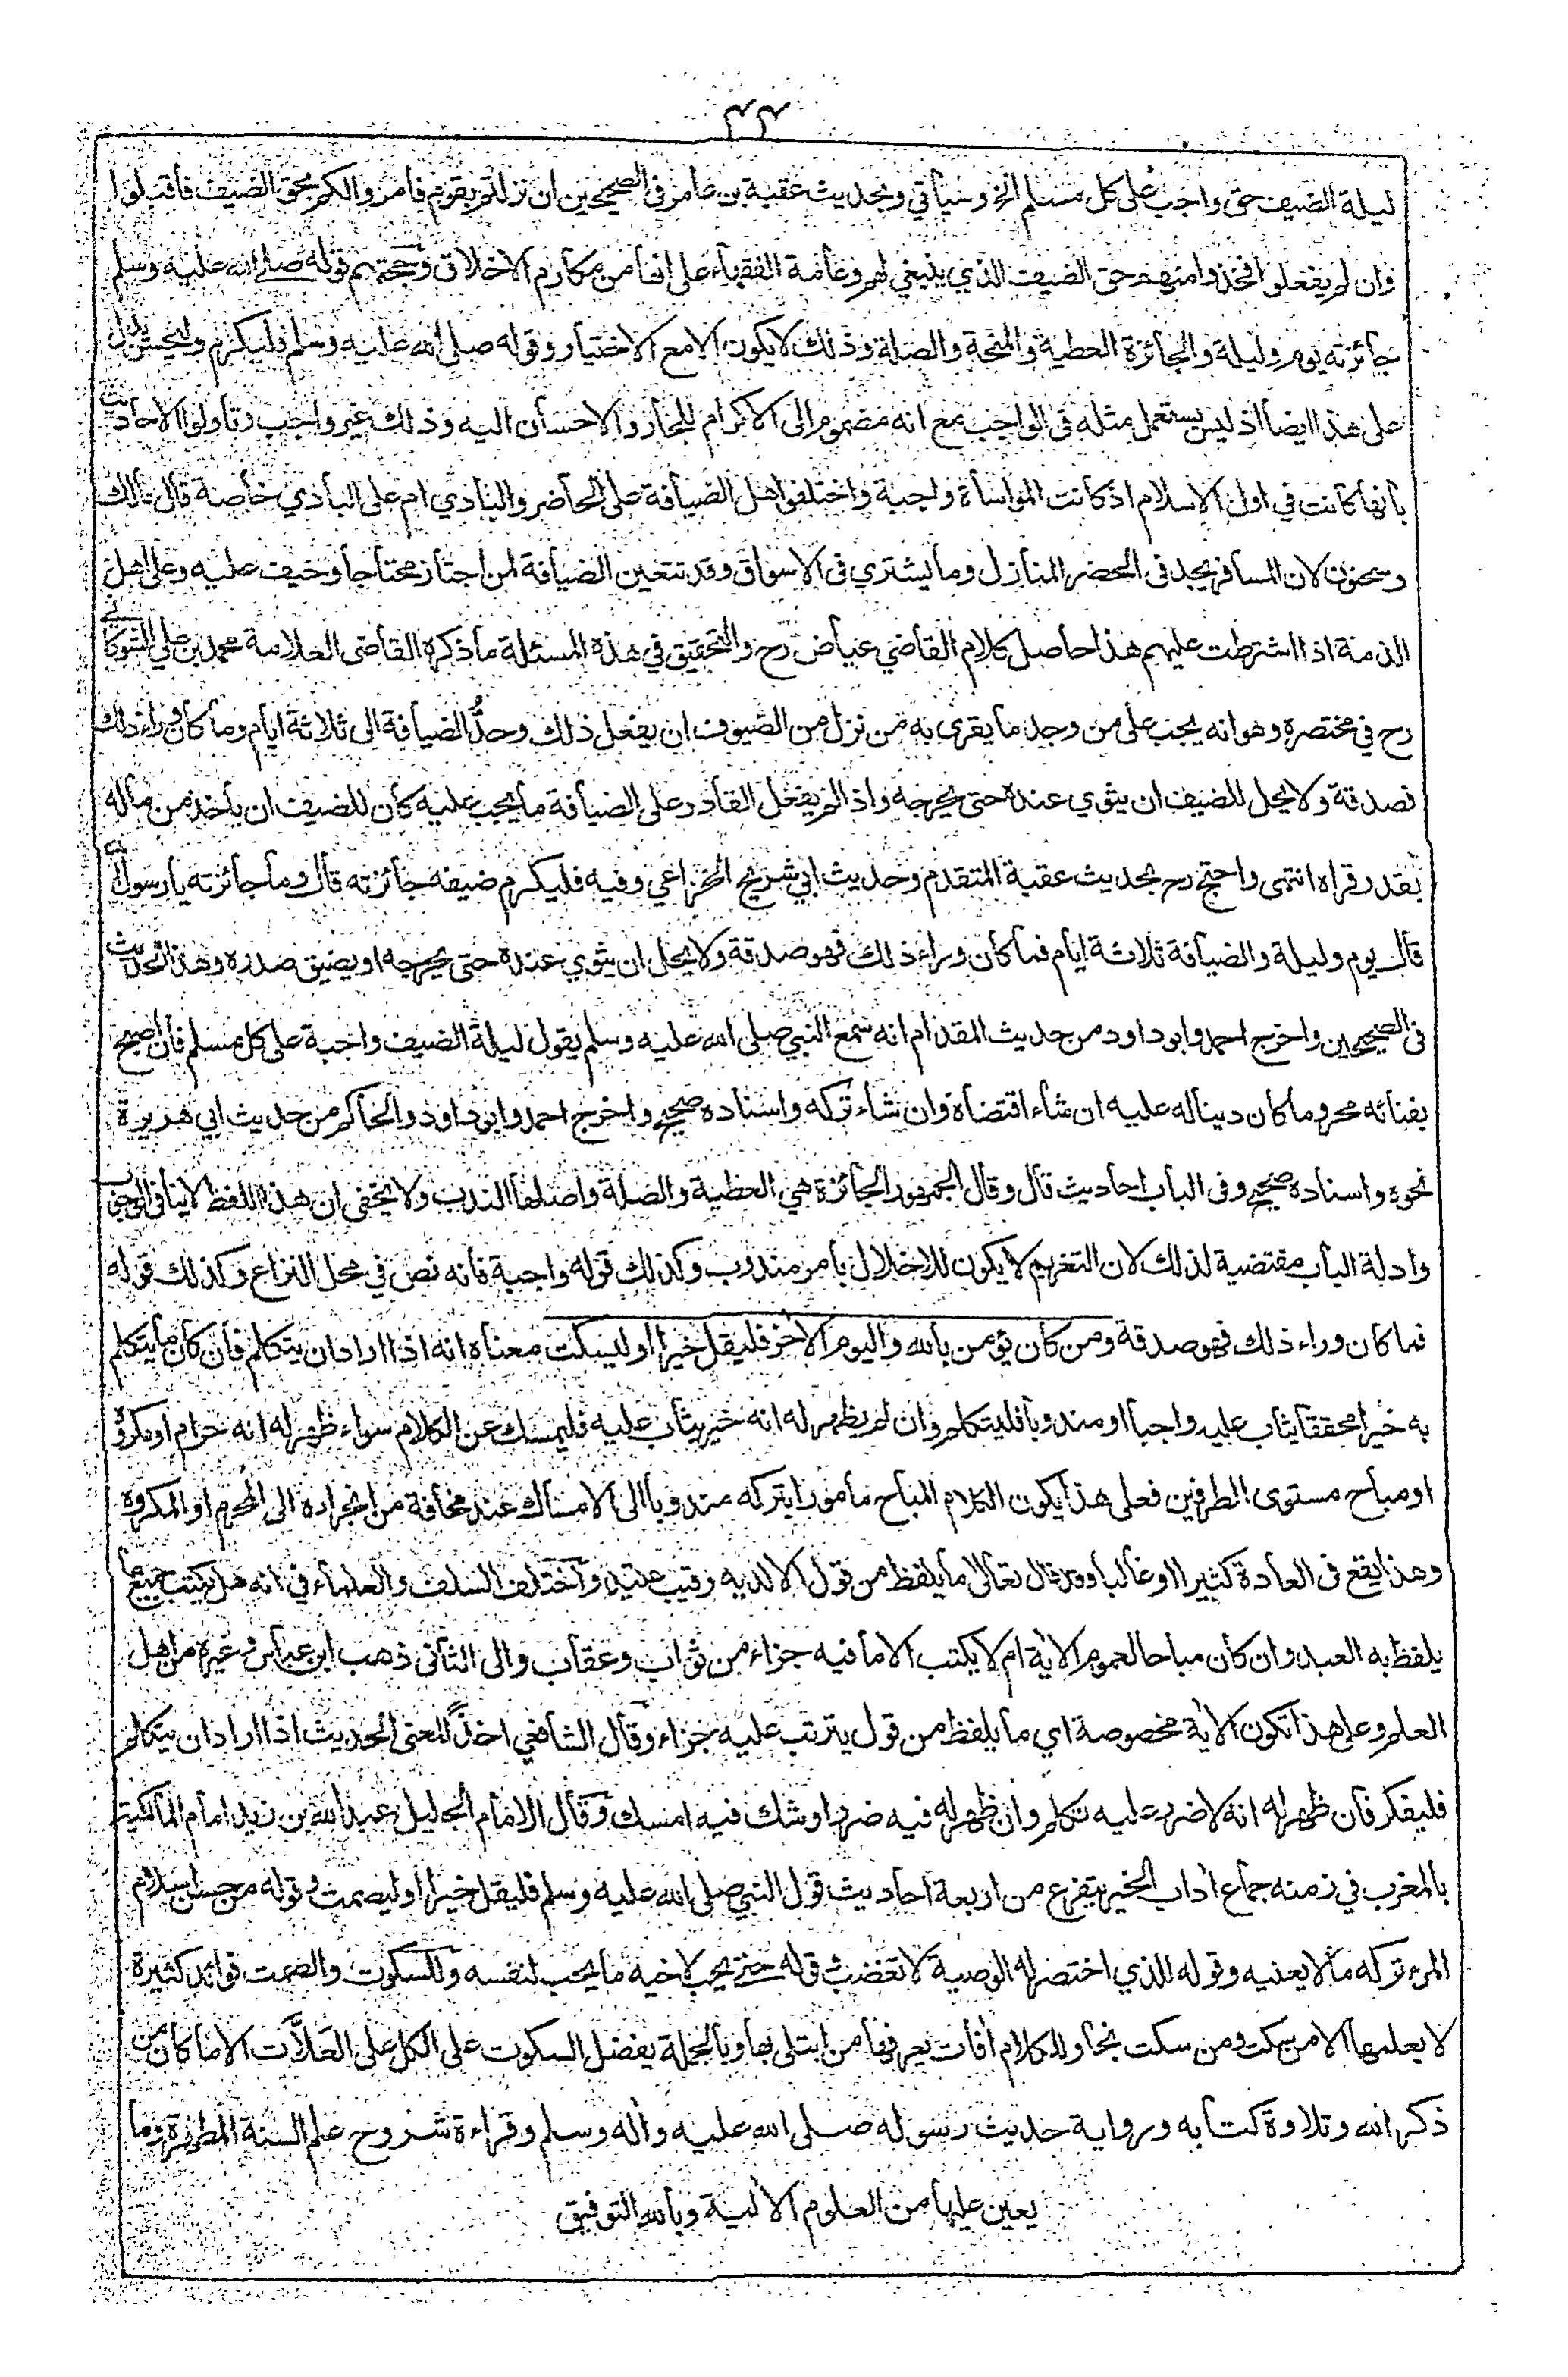 ٣٣
ليلة الضيف حق واجب على كل مسلم الخ وسيأتي وبحديث عقبة بن عامر في الصحيحين ان نزلتم بقوم فامروا لكم بحق الضيف فأقبلوا
وان لم يفعلوا فخذوا منهم حق الضيف الذي ينبغي لهم وعامة الفقهاء على انها من مكارم الاخلاق وحجتهم قوله صلى الله عليه وسلم
جائزته يوم وليلة والجائزة العطية والمنحة والصلة وذلك لا يكون الا مع الاختيار وقوله صلى الله عليه وسلم فليكرم وليحسن يدل
على هذا ايضا اذ ليس يستعمل مثله في الواجب مع انه مضموم الى الاكرام للجار والاحسان اليه وذلك غير واجب وتأولوا الاحاديث
بأنها كانت في اول الاسلام اذ كانت المواساة واجبة واختلفوا هل الضيافة على الحاضر والبادي ام على البادي خاصة قال مالك
وسحنون لان المسافر يجد في الحضر المنازل وما يشتري في الاسواق وقد تتعين الضيافة لمن اجتاز محتاجا وخيف عليه وعلى اهل
الذمة اذا اشترطت عليهم هذا حاصل كلام القاضي عياض رح والتحقيق في هذه المسئلة ما ذكره القاضي العلامة محمد بن علي الشوكاني
رح في مختصره وهو انه يجب على من وجد ما يقري به من نزل من الضيوف ان يفعل ذلك وحدُّ الضيافة الى ثلاثة ايام وما كان وراء ذلك
فصدقة ولا يحل للضيف ان يثوي عنده حتى يحرجه واذا لم يفعل القادر على الضيافة ما يجب عليه كان للضيف ان يأخذ من ماله
بقدر قراه انتهى واحتج رح بحديث عقبة المتقدم وحديث ابي شريح الخزاعي وفيه فليكرم ضيفه جائزته قال وما جائزته يا رسول الله
قال يوم وليلة والضيافة ثلاثة ايام فما كان وراء ذلك فهو صدقة ولا يحل ان يثوي عنده حتى يحرجه او يضيق صدره وهذا الحديث
في الصحيحين واخرج احمد وابو داود من حديث المقدام انه سمع النبي صلى الله عليه وسلم يقول ليلة الضيف واجبة على كل مسلم فان اصبح
بفنائه محروما كان دينا له عليه ان شاء اقتضاه وان شاء تركه واسناده صحيح واخرج احمد وابو داود والحاكم من حديث ابي هريرة
نحوه واسناده صحيح وفي الباب احاديث قال وقال الجمهور الجائزة هي العطية والصلة واصلها الندب ولا يخفى ان هذا اللفظ لا ينافي الوجوب
وادلة الباب مقتضية لذلك لان التغريم لا يكون للاخلال بأمر مندوب وكذلك قوله واجبة فانه نص في محل النزاع وكذلك قوله
فما كان وراء ذلك فهو صدقة ومن كان يؤمن بالله واليوم الاخر فليقل خيرا او ليسكت معناه انه اذا اراد ان يتكلم فان كان ما يتكلم
به خيرا محققا يثاب عليه واجبا او مندوبا فليتكلم وان لم يظهر له انه خير يثاب عليه فليمسك عن الكلام سواء ظهر له انه حرام او مكروه
او مباح مستوى الطرفين فعلى هذا يكون الكلام المباح مأمورا بتركه مندوبا الى الامساك عنه مخافة من انجراره الى المحرم او المكروه
وهذا يقع في العادة كثيرا او غالبا وقد قال تعالى ما يلفظ من قول الا لديه رقيب عتيد واختلف السلف والعلماء في انه هل يكتب جميع ما
يلفظ به العبد وان كان مباحا لعموم الاٰية ام لا يكتب الا ما فيه جزاء من ثواب وعقاب والى الثاني ذهب ابن عباس وغيره من اهل
العلم وعلى هذا تكون الاٰية مخصوصة اي ما يلفظ من قول يترتب عليه جزاء وقال الشافعي اخذًا لمعنى الحديث اذا اراد ان يتكلم
فليفكر فان ظهر له انه لا ضرر عليه تكلم وان ظهر له فيه ضرر او شك فيه امسك وقال الامام الجليل عبد الله بن زيد امام المالكية
بالمغرب في زمنه جماع اٰداب الخير يتفرع من اربعة احاديث قول النبي صلى الله عليه وسلم فليقل خيرا او ليصمت وقوله من حسن اسلام
المرء تركه ما لا يعنيه وقوله للذي اختصر له الوصية لا تغضب وقوله حتى يحب لاخيه ما يحب لنفسه وللسكوت والصمت فوائد كثيرة
لا يعلمها الا من سكت ومن سكت نجا وللكلام اٰفات يعرفها من ابتلى بها وبالجملة يفضل السكوت على الكل على العَلَّات الا ما كان من
ذكر الله وتلاوة كتابه ورواية حديث رسوله صلى الله عليه واٰله وسلم وقراءة شروح علم السنة المطهرة وما
يعين عليها من العلوم الاٰلية وبالله التوفيق